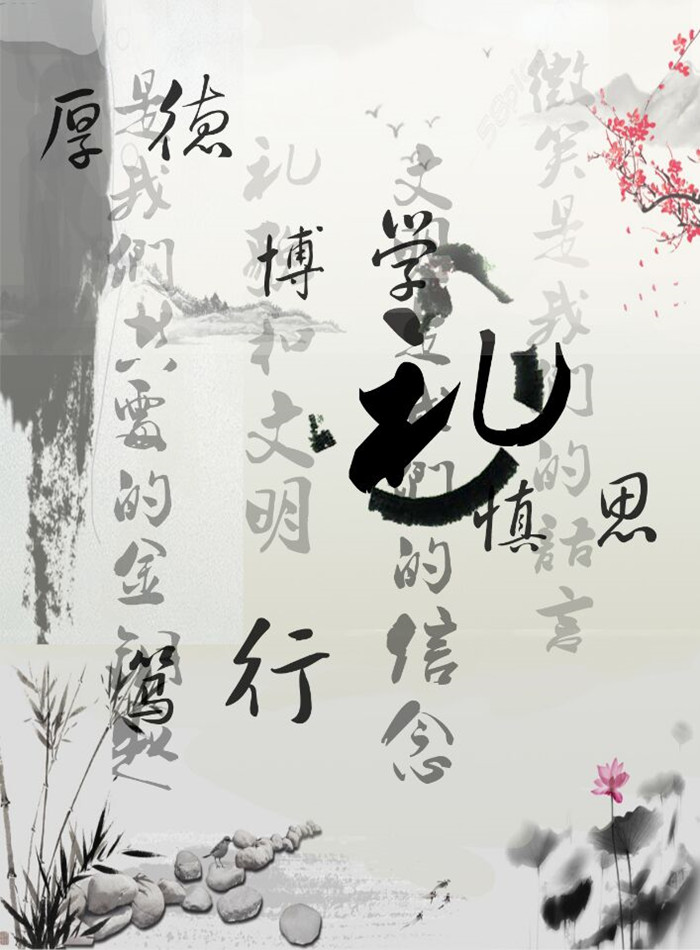 厚德
博学
礼
慎思
笃行
微笑是我們的話言
文明是我們的信念
礼貌和文明
是我們共需的金鑰匙